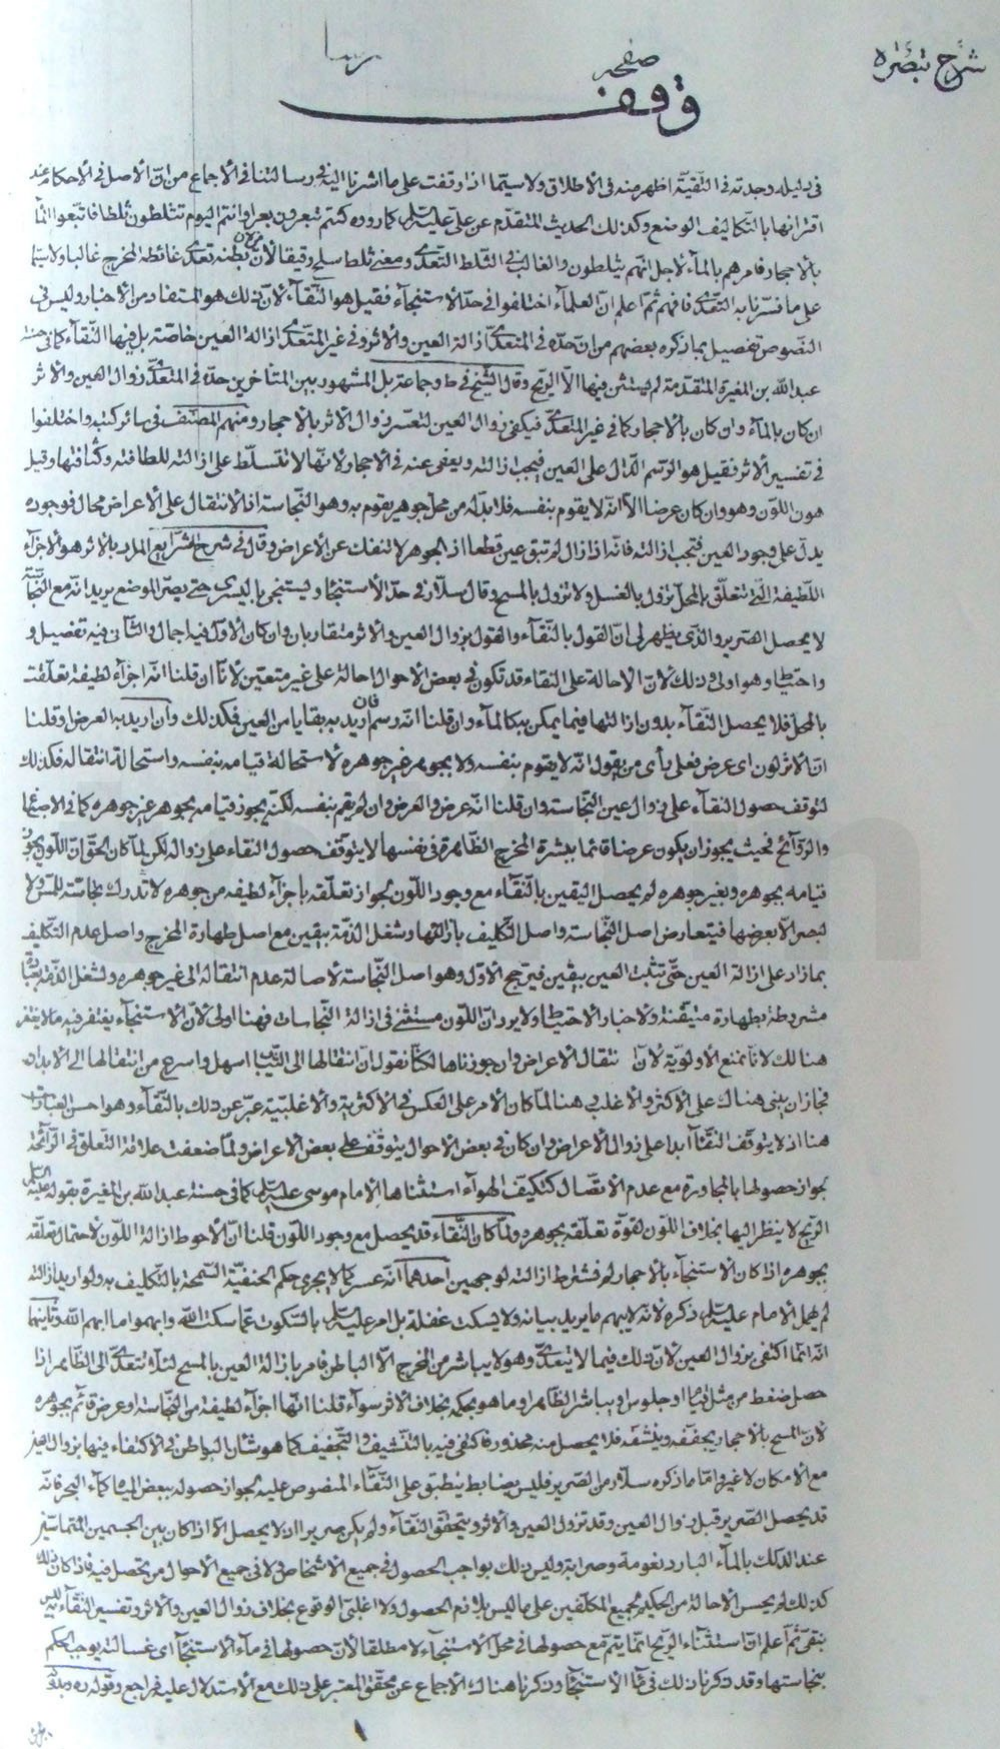 شرح تبصره
صفحه
وقف
في دليله وجدته في التقية اظهر منه في الاطلاق ولا سيما اذا وقفت على ما اشرنا اليه في رسالتنا في الاجماع من ان الاصل في الاحكام عند
اقترانها بالتكاليف الوضع وكذلك الحديث المتقدم عن علي عليه السلام كما رووه كنتم تبعرون بعرا وانتم اليوم تثلطون ثلطا فاتبعوا الماء
بالاحجار فامرهم بالماء لاجل انهم يثلطون والغالب في الثلط التعدي ومعنى ثلط سلح رقيقا لان من لان بطنه تعدى غائطه المخرج غالبا ولا سيما
على ما فسرنا به التعدي فافهم ثم اعلم ان العلماء اختلفوا في حد الاستنجاء فقيل هو النقاء لان ذلك هو المستفاد من الاخبار وليس في
النصوص تفصيل بما ذكره بعضهم من ان حده في المتعدي ازالة العين والاثر وفي غير المتعدي ازالة العين خاصة بل فيها النقاء كما في حسنة
عبدالله بن المغيرة المتقدمة لم يستثن فيها الا الريح وقال الشيخ في ط وجماعة بل المشهور بين المتاخرين حده في المتعدي زوال العين والاثر
ان كان بالماء وان كان بالاحجار كما في غير المتعدي فيكفي زوال العين لتعسر زوال الاثر بالاحجار ومنهم المصنف في سائر كتبه واختلفوا
في تفسير الاثر فقيل هو الرسم الدال على العين فيجب ازالته ويعفى عنه في الاحجار لانها لا تتسلط على ازالته للطافته وكثافتها وقيل
هو اللون وهو وان كان عرضا الا انه لا يقوم بنفسه فلا بد له من محل جوهر يقوم به وهو النجاسة اذ الانتقال على الاعراض محال فوجوده
يدل على وجود العين فتجب ازالته فانه اذا زال لم تبق عين قطعا اذ الجوهر لا تنفك عن الاعراض وقال في شرح الشرايع المراد بالاثر هو الاجزاء
اللطيفة التي تتعلق بالمحل تزول بالغسل ولا تزول بالمسح وقال سلار في حد الاستنجاء ويستنجي باليسرى حتى يصر الموضع يريد انه مع النجاسة
لا يحصل الصرير والذي يظهر لي ان القول بالنقاء والقول بزوال العين والاثر متقاربان وان كان الاول فيه اجمال والثاني فيه تفصيل و
واحتياط وهو اولى وذلك لان الاحالة على النقاء قد تكون في بعض الاحوال احالة على غير متعين لانا ان قلنا انه اجزاء لطيفة تعلقت
بالمحل فلا يحصل النقاء بدون ازالتها فيما يمكن بكالماء وان قلنا انه رسم فان اريد به بقايا من العين فكذلك وان اريد به العرض او قلنا
ان الاثر لون اي عرض فعلى رأي من يقول انه لا يقوم بنفسه ولا بجوهر غير جوهره لاستحالة قيامه بنفسه واستحالة انتقاله فكذلك
لتوقف حصول النقاء على زوال عين النجاسة وان قلنا انه عرض والعرض وان لم يقم بنفسه لكنه يجوز قيامه بجوهر غير جوهره كما في الاصباغ
والروائح فحيث يجوز ان يكون عرضا قائما ببشرة المخرج الظاهرة في نفسها لا يتوقف حصول النقاء على زواله لكن لما كان الحق ان اللون يجوز
قيامه بجوهره وبغير جوهره لم يحصل اليقين بالنقاء مع وجود اللون لجواز تعلقه باجزاء لطيفه من جوهره لا تدرك نجاسته للمس ولا
لبصر الا بعرضها فيتعارض اصل النجاسة واصل التكليف بازالتها وشغل الذمة بيقين مع اصل طهارة المخرج واصل عدم التكليف
بما زاد على ازالة العين حتى تثبت العين بيقين فيترجح الاول وهو اصل النجاسة لاصالة عدم انتقاله الى غير جوهره ولشغل الذمة بعبادة
مشروطة بطهارة متيقنة ولاخبار الاحتياط ولا يرد ان اللون مستثنى في ازالة النجاسات فهنا اولى لان الاستنجاء يغتفر فيه ما لا يغتفر
هنالك لانا نمنع الاولوية لان انتقال الاعراض وان جوزناها لكنا نقول ان انتقالها الى الثياب اسهل واسرع من انتقالها الى الابدان
فجاز ان يبنى هناك على الاكثر والاغلب وهنا لما كان الامر على العكس في الاكثرية والاغلبية عبر عن ذلك بالنقاء وهو احسن العبارات
هنا اذ لا يتوقف النقاء ابدا على زوال الاعراض وان كان في بعض الاحوال يتوقف على بعض الاعراض ولما ضعفت علاقة التعلق في الرائحة
بجواز حصولها بالمجاورة مع عدم الاتصال كتكيف الهواء استثناها الامام موسى عليه السلام كما في حسنة عبدالله بن المغيرة بقوله عليه السلام
الريح لا ينظر اليها بخلاف اللون لقوة تعلقه بجوهره ولما كان النقاء قد يحصل مع وجود اللون قلنا ان الاحوط ازالة اللون لاحتمال تعلقه
بجوهره اذا كان الاستنجاء بالاحجار لم نشترط ازالته لوجهين احدهما انه عسر كما لا يجري حكم الحنفية السمحة بالتكليف به ولو اريد ازالته
لم يهمل الامام عليه السلام ذكره لانه لا يبهم ما يريد بيانه ولا يسكت غفلة بل امر عليه السلام بالسكوت عما سكت الله وابهموا ما ابهم الله وثانيهما
انه انما اكتفى بزوال العين لان ذلك فيما لا يتعدى وهو لا يباشر من المخرج الا الباطن فامر بازالة العين بالمسح لئلا تتعدى الى الظاهر اذا
حصل ضغط من مثل قيام او جلوس او يباشر الظاهر او ما هو بحكمه بخلاف الاثر سواء قلنا انها اجزاء لطيفة من النجاسة او عرض قائم بجوهره
لان المسح بالاحجار يجففه وينشفه فلا يحصل منه محذور فاكتفى فيه بالتنشيف والتجفيف كما هو شأن البواطن في الاكتفاء فيها بزوال العين
مع الامكان لا غير واما ما ذكره سلار من الصرير فليس بضابط ينطبق على النقاء المنصوص عليه لجواز حصوله ببعض المياه كماء البحر فانه
قد يحصل الصرير قبل زوال العين وقد تزول العين والاثر ويتحقق النقاء ولم يكن صرير اذ لا يحصل الا اذا كان بين الجسمين المتماسين
عند الدلك بالماء البارد نعومة وصرابة وليس ذلك بواجب الحصول في جميع الاشخاص ولا في جميع الاحوال من يحصل فيه فاذا كان ذلك
كذلك لم يحسن الاحالة من الحكيم لجميع المكلفين على ما ليس بلازم الحصول ولا اغلبي الوقوع بخلاف زوال العين والاثر وتفسير النقاء به ليس
بنقي ثم اعلم ان استثناء الريح انما يتم مع حصولها في محل الاستنجاء لا مطلقا لان حصولها في ماء الاستنجاء اي غسالته يوجب الحكم
بنجاستها وقد ذكرنا ذلك في ماء الاستنجاء وذكرنا هناك الاجماع عن محقق المعتبر على ذلك مع الاستدلال عليه فراجع وقوله ره وبدو